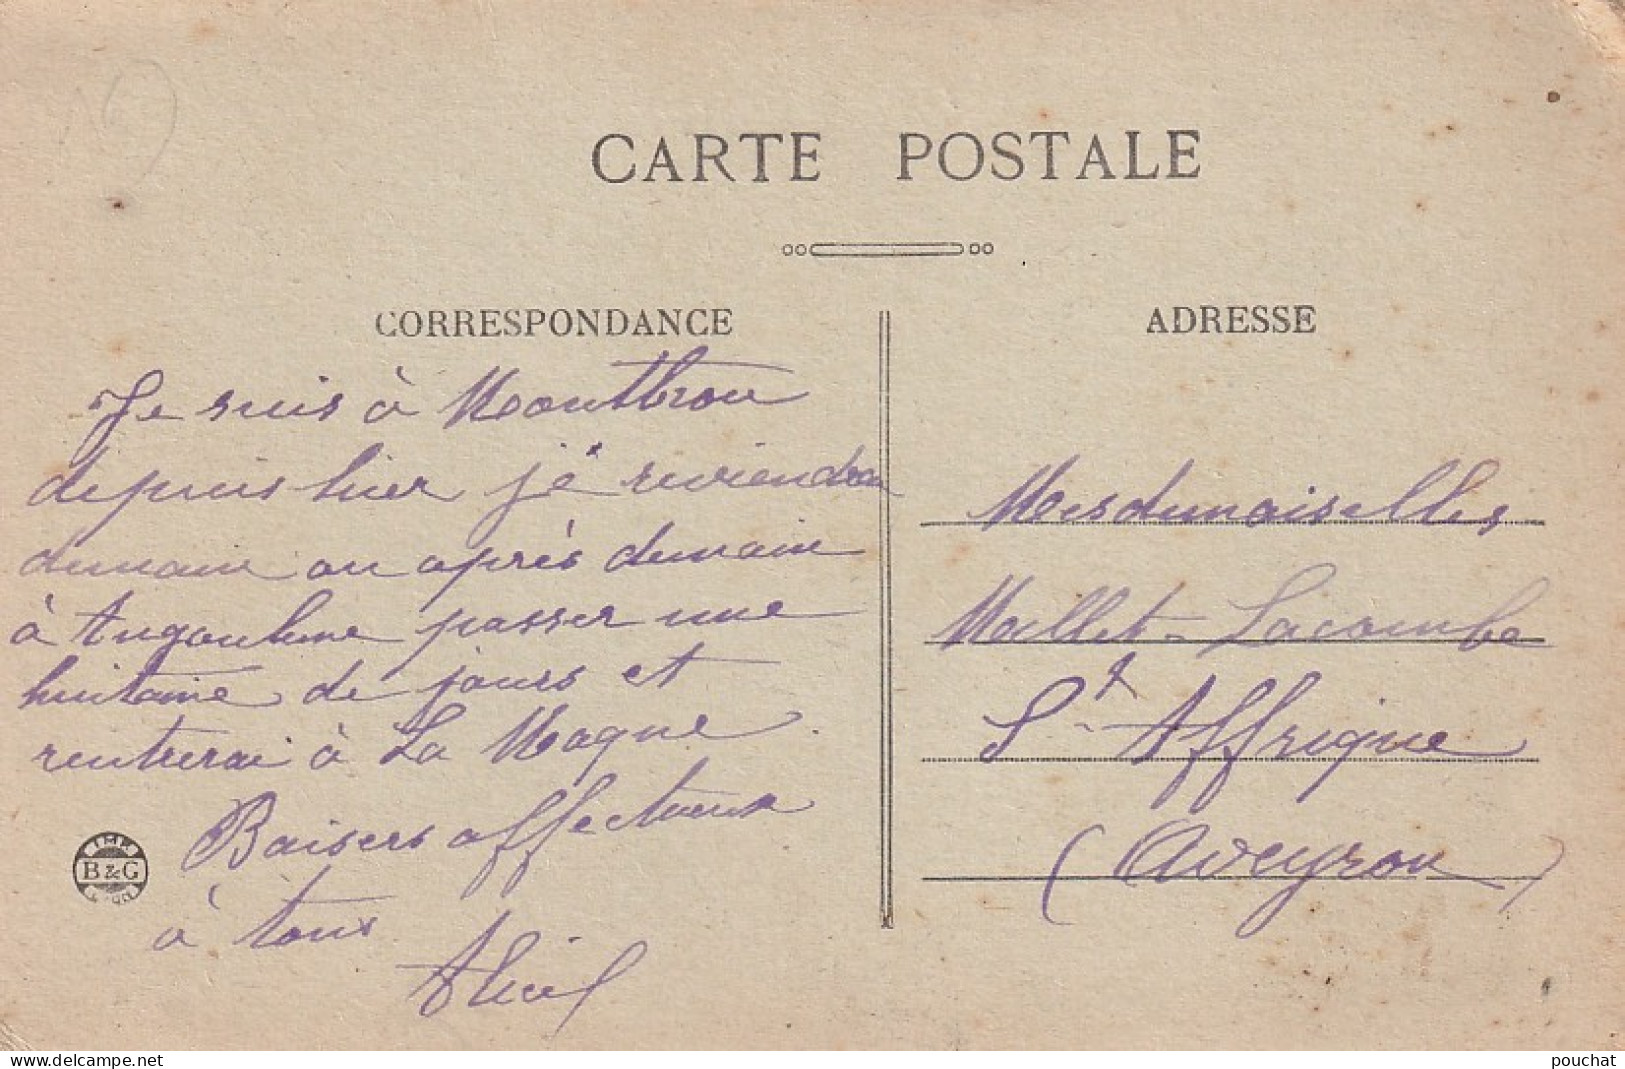 CARTE POSTALE
CORRESPONDANCE
Je suis à Montbron
depuis hier je reviendrai
demain ou après demain
à Angoulême passer une
huitaine de jours et
rentrerai à La Magne.
Baisers affectueux
à tous
ADRESSE
Mesdemoiselles
Mallet-Lacombe
St Affrique
(Aveyron)
IMP.
B & G
www.delcampe.net
pouchat